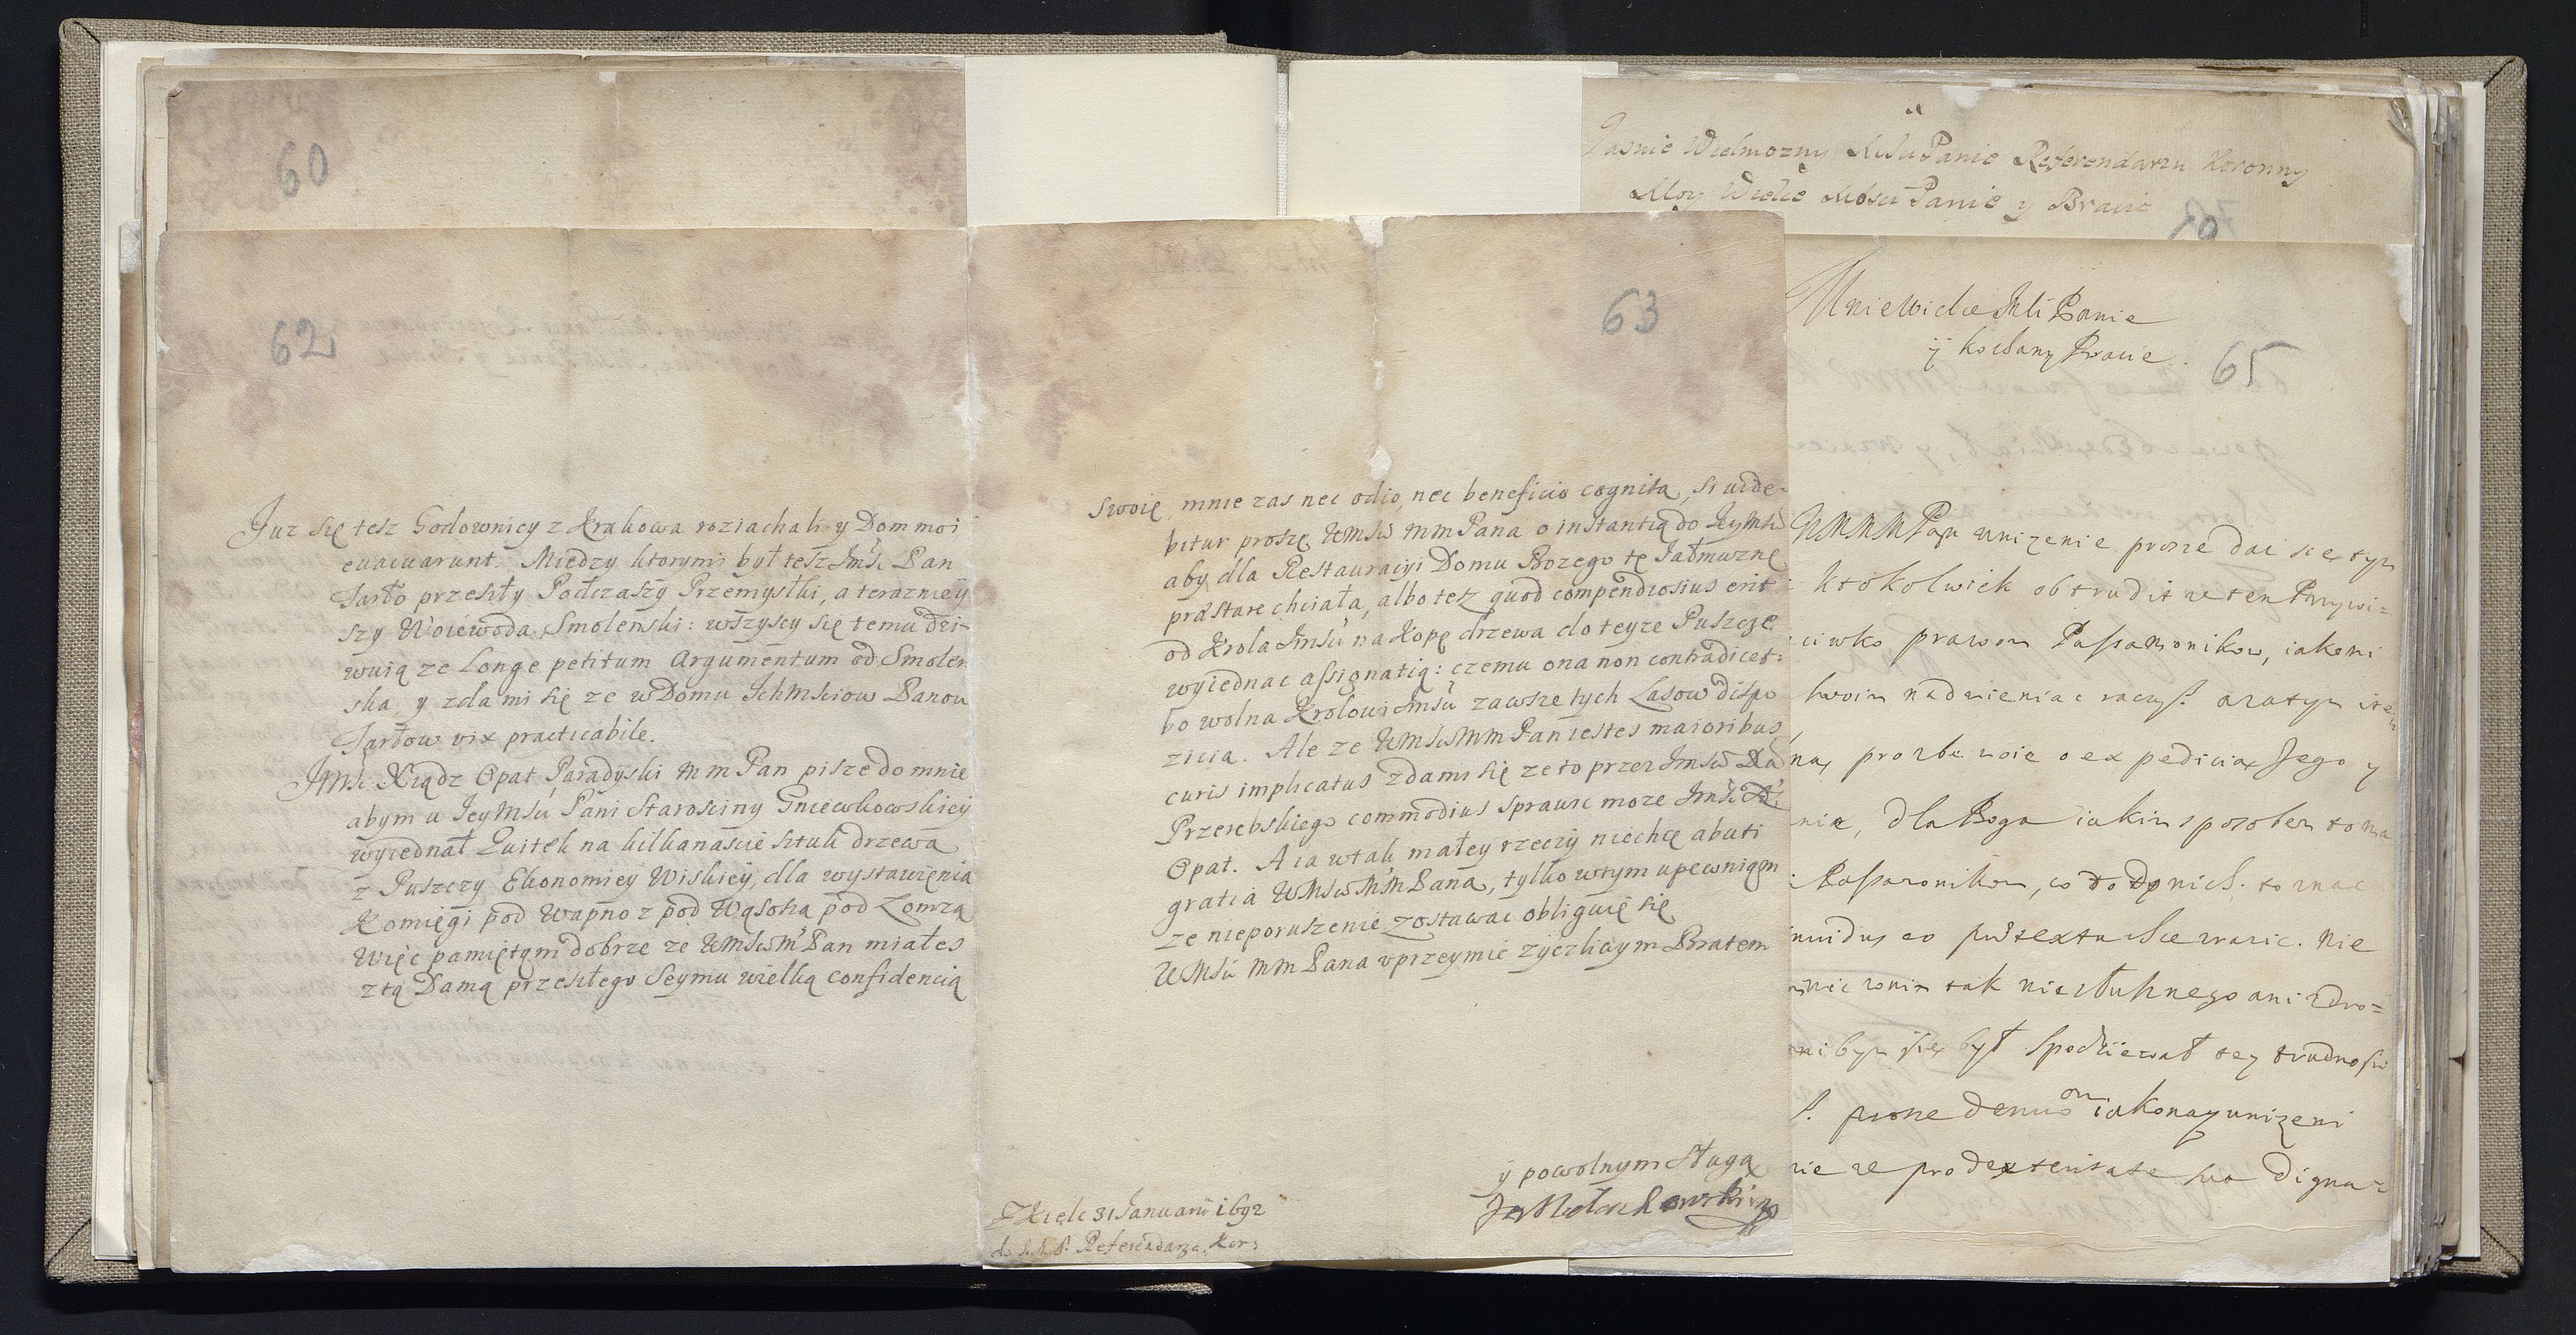 60
62
Juz się tesz Godownicy z Krakowa roziachali y Dom moi
evacuarunt. Między ktorymi był tesz Jmść Pan
Tarło przeszły Podczaszy Przemyslki, a teraznieÿ
szy Woiewoda Smolenski: wszyscy się temu dzi-
wuią ze Longe petitum Argumentum od Smolen
ska, y zda mi się ze w Domu Ichmsciow Panow
Tarłow vix practicabile.
Jmść Xiądz Opat Paradyski mm Pan pisze do mnie
abym u Jeymsci Pani Starosciny Gniewkowskieÿ
wyiednał Kwitek na kilkanascie sztuk drzewa
z Puszczy Ekonomiey Wiskieÿ, dla wystawięnia
Komięgi pod Wapno z pod Wąsosza pod Lomzą
Więc pamiętąm dobrze ze WMsćm Pan miałes
z tą Damą przeszłego Seymu wielką confidencią
63
swoię, mnie zas nec odio, nec beneficio cognita, si vide-
bitur proszę WMsci mm Pana o instantią do Jeymsci
aby dla Restauracyi Domu Bozego tę Jałmuznę
præstare chciała, albo tesz quod compendiosius erit
od Krola Jmsci na Kopę drzewa do teyze Puszcze
wyiednac assignatią: czemu ona non contradicet:
bo wolna Krolowi Jmsci zawsze tych Lasow dispo
zicia. Ale ze WMscmm Pan iestes maioribus
curis implicatus zdami się ze to przez Jmsci Xa
Przerebskiego commodius sprawic moze Jmsc X.
Opat. A ia w tak małey rzeczÿ niechcę abuti
gratia WMscmm Pana, tylko w tym upewnigm
ze nieporuszenie zostawac obliguię się
WMsci mm Pana uprzeymie zyczliwym Bratem
ÿ powolnym sługą
Jan Małachowski
Z Kielc 31 Januarii 1692
do Referendarza Kor:
Jasnie Wielmozny Mści Panie Referendarzu Koronny
Moy Wielce Mosci Panie y Bracie
Mnie Wielce Mści Panie
ÿ kochany Bracie.
65
WMMM Pan unizenie prosze dai się tym
ktokolwiek obtrudit ten Przywi=
ciwko prawom Passamonikow, iakoni
swoim nadmieniac raczysz.
prozbe moie o ex pedicią Jego y
nia, dla Boga iakim sposobem to ma
Passamonikow, co do to znac
prætextu chce Nie
tak niesłusznego ani zdro=
byn się był spodziewał tey trudnosci
prosze denuo iako nayunizeni
nie ze pro dexteritate sua digna=